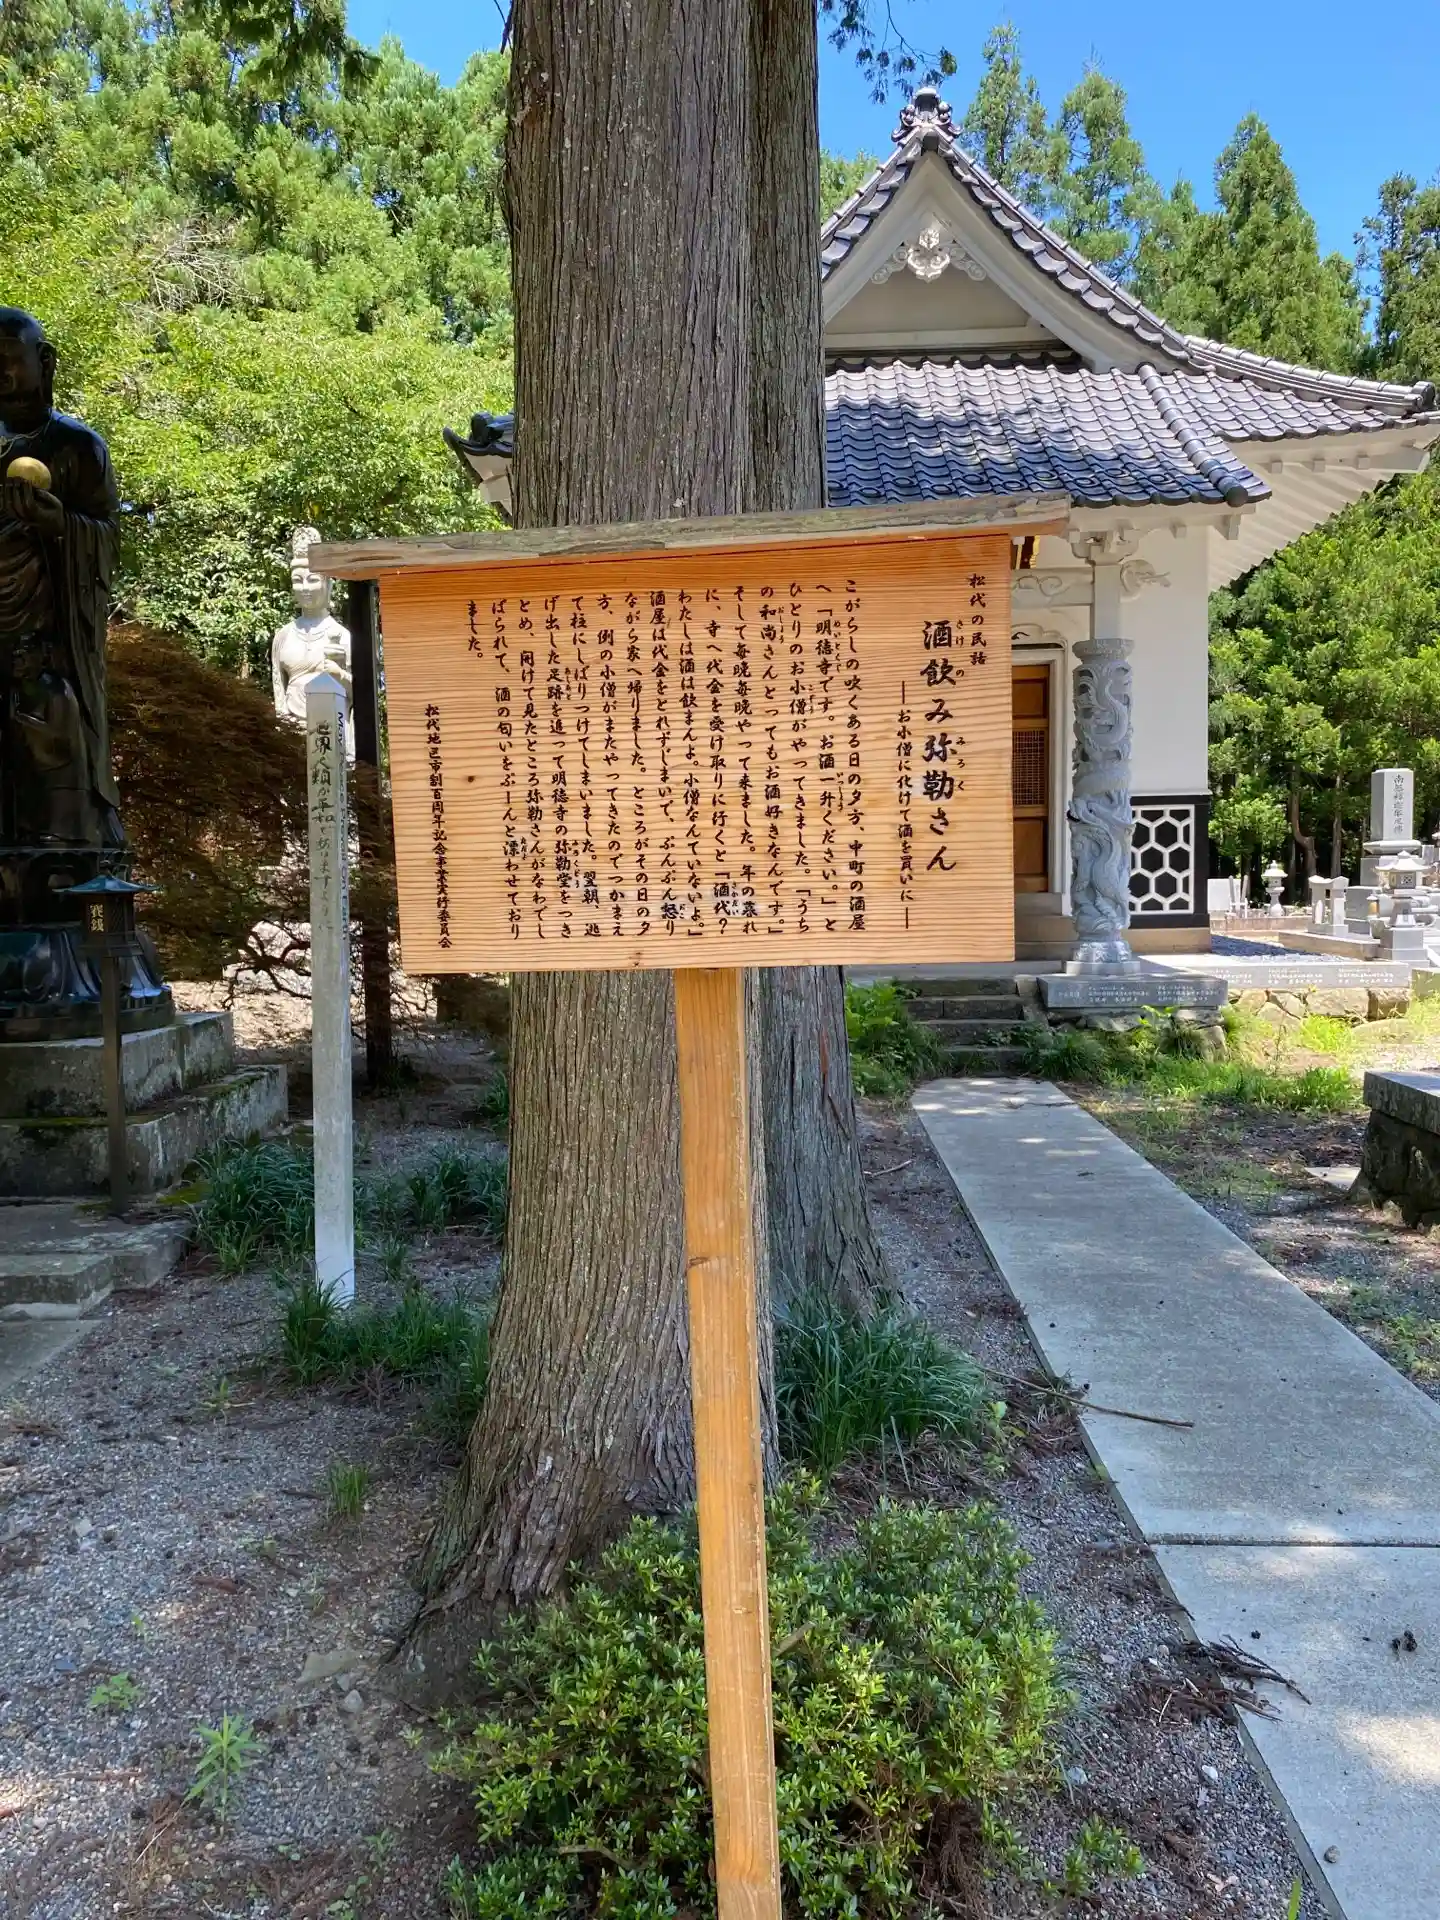 松代の民話
酒飲み弥勒さん
さけ の みろく
―お小僧に化けて酒を買いに―
こがらしの吹くある日の夕方、中町の酒屋
へ「明徳寺です。お酒一升ください。」と
めいとくじ いっしょう
ひとりのお小僧がやってきました。「うち
こぞう
の和尚さんとってもお酒好きなんです。」
おしょう
そして毎晩毎晩やって来ました。年の暮れ
に、寺へ代金を受け取りに行くと「酒代?
さかだい
わたしは酒は飲まんよ。小僧なんていないよ。」
酒屋は代金をとれずじまいで、ぷんぷん怒り
おこ
ながら家へ帰りました。ところがその日の夕
方、例の小僧がまたやってきたのでつかまえ
て柱にしばりつけてしまいました。翌朝、逃
げ出した足跡を追って明徳寺の弥勒堂をつき
あしあと
とめ、開けて見たところ弥勒さんがなわでし
ばられて、酒の匂いをぷーんと漂わせており
ただよ
ました。
松代地区市制百周年記念事業実行委員会
世界人類が平和でありますように
賽銭